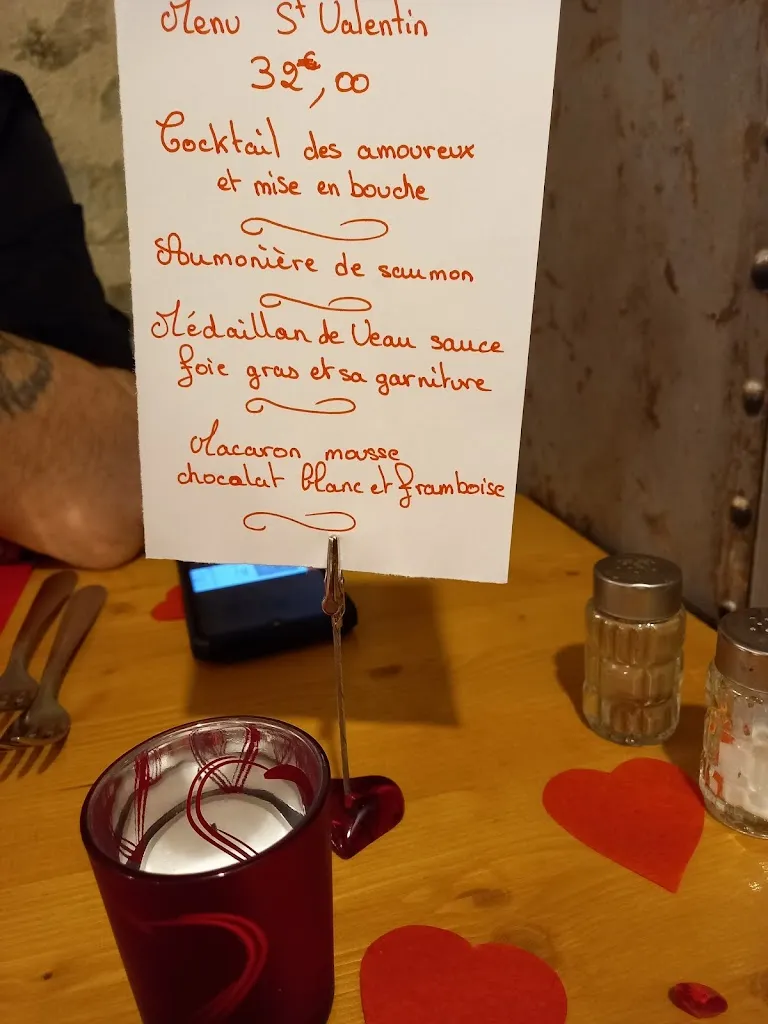 Menu St Valentin
32€,00
Cocktail des amoureux
et mise en bouche
Aumonière de saumon
Médaillon de Veau sauce
foie gras et sa garniture
Macaron mousse
chocolat blanc et framboise